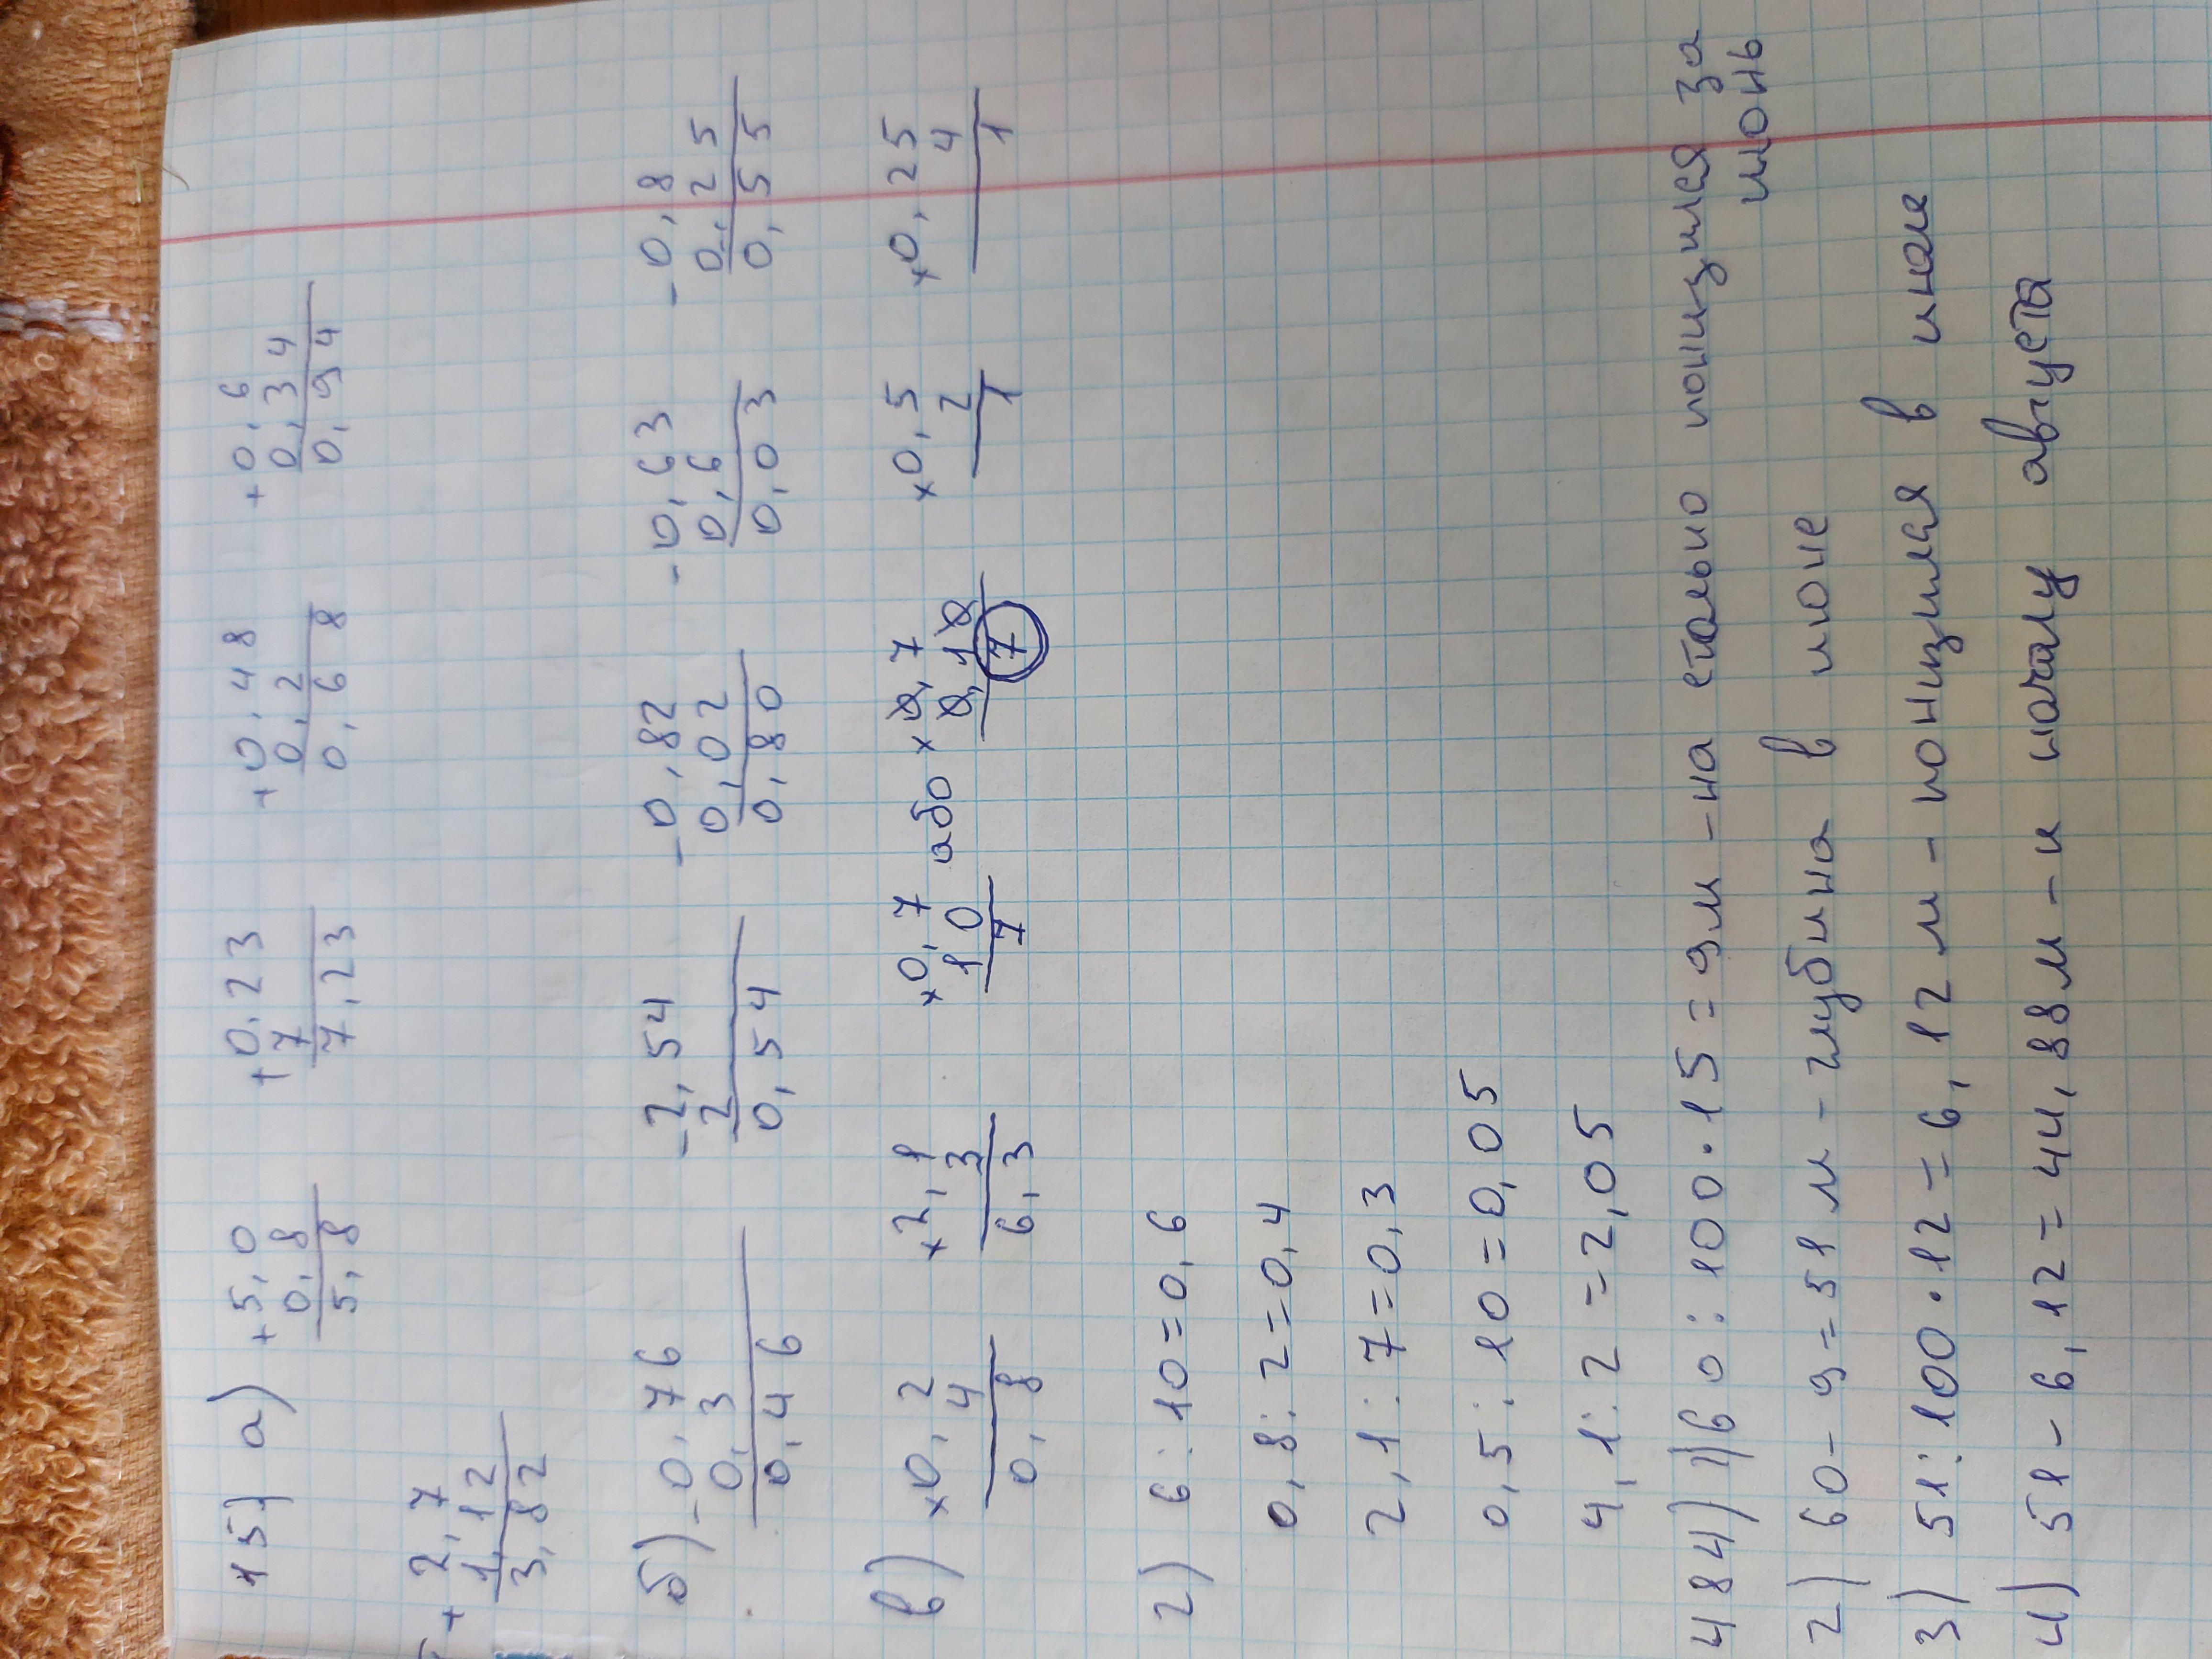 15) а) +5,0 +0,23 +0,48 +0,6
0,8 7 0,2 0,34
5,8 7,23 0,68 0,94
+2,7
1,12
3,82
б) -0,76 -2,54 -0,82 -0,63 -0,8
0,3 2 0,02 0,6 0,25
0,46 0,54 0,80 0,03 0,55
в) ×0,2 ×2,1 ×0,7 або ×0,7 ×0,5 ×0,25
4 3 10 0,10 2 4
0,8 6,3 7 7 1 1
г) 6:10=0,6
0,8:2=0,4
2,1:7=0,3
0,5:10=0,05
4,1:2=2,05
484) 1) 60:100·15=9м-на стально понизился за
июнь
2) 60-9=51 м-глубина в июне
3) 51:100·12=6,12 м-понизился в июле
4) 51-6,12=44,88м-к началу августа